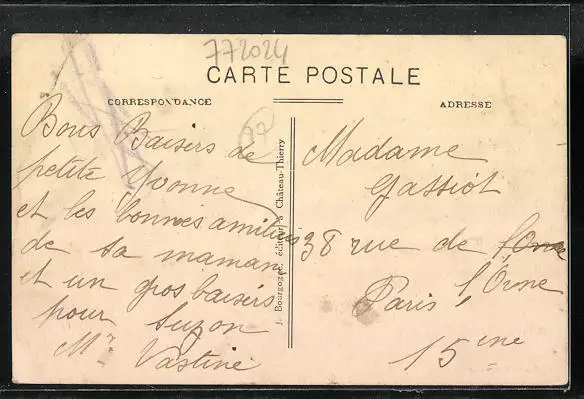 772024
CARTE POSTALE
CORRESPONDANCE
ADRESSE
Bons Baisers de
petite Yvonne
et les bonnes amitiés
de sa maman
et un gros baisers
pour Suzon
Mr Vastine
J. Bourgogne, éditeur à Château-Thierry
Madame
Gassiot
38 rue de
l'Orne
Paris
15eme